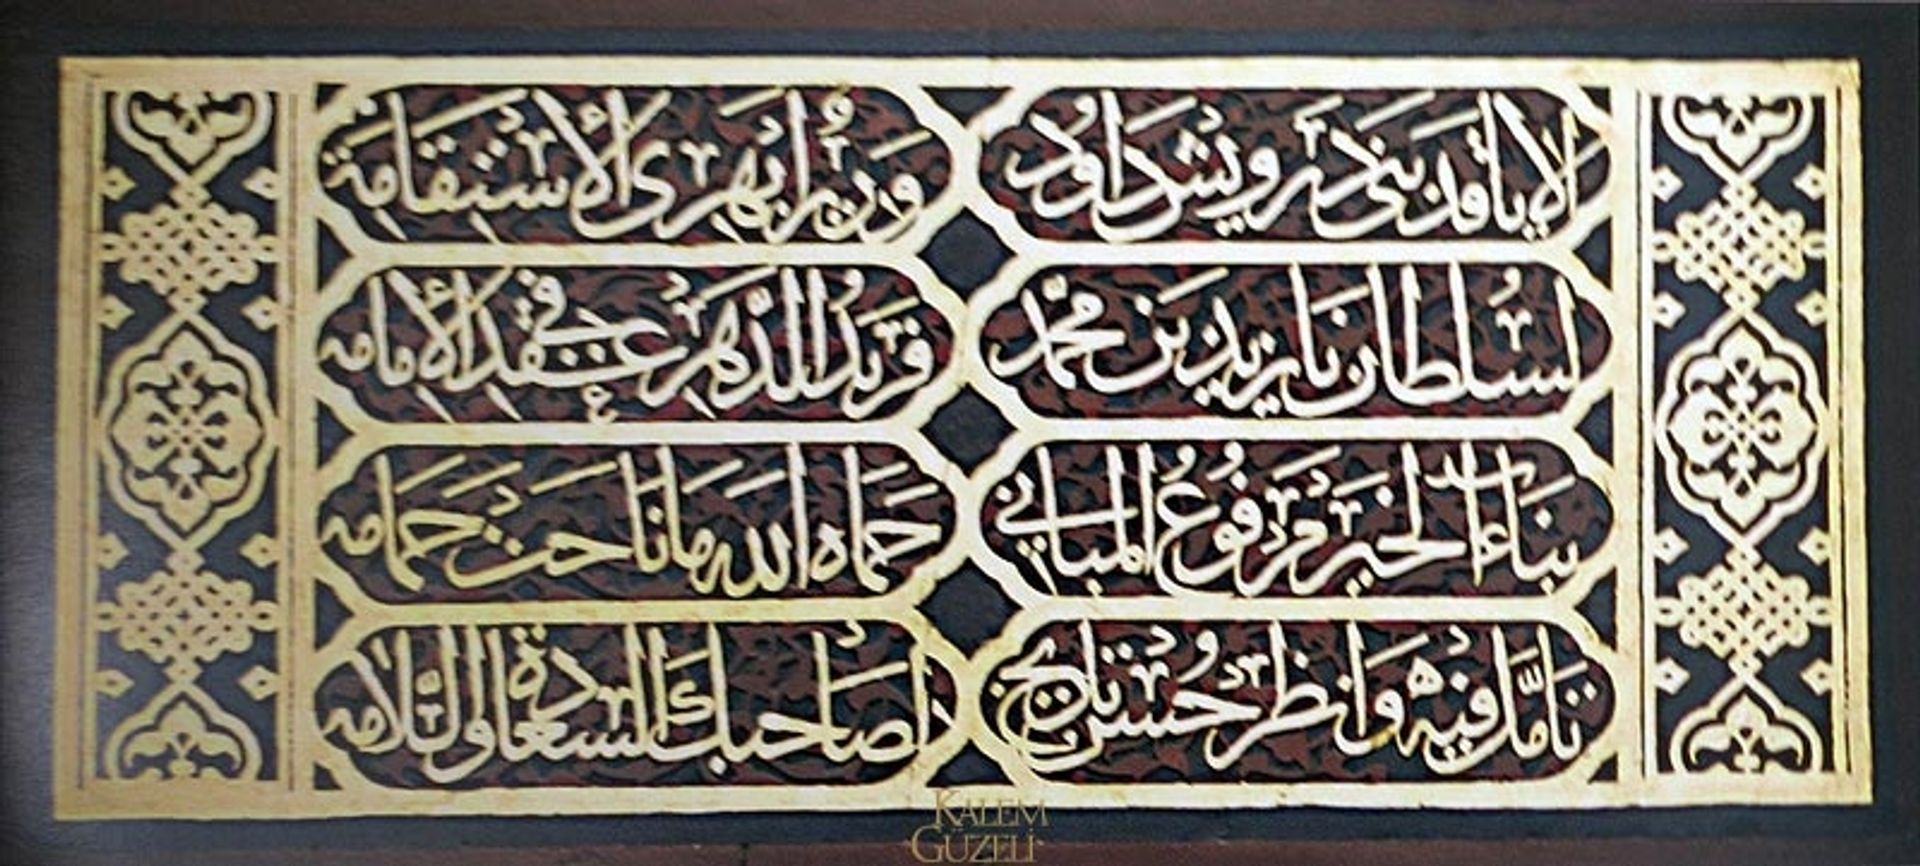 الا يا قد بنى درويش داود وزير ابهرى الاستقامة
لسلطان بايزيد بن محمد فريد الدهر في عقد الامامه
بناء الخير مرفوع المباني حماه الله ما ناحت حمامه
تامل فيه وانظر حسن تاريخ لصاحبك السعادة والسلامه
KALEM
GÜZELİ